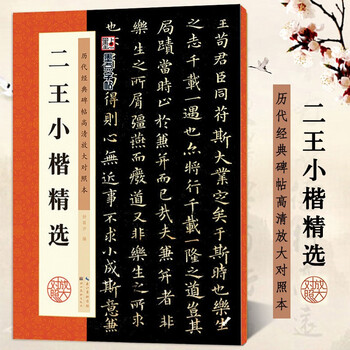 历代经典碑帖高清放大对照本
二王小楷精选
墨点字帖
王苟君臣同符斯大業定矣于斯時也樂生
之志千載一遇也亦將行千載一隆之道豈其
局蹟當時止於兼并而已哉夫兼并者非
樂生之所屑彊燕而廢道又非樂生之所求
得則心無近事不求小成斯意兼
二王小楷精选
历代经典碑帖高清放大对照本
放大对照